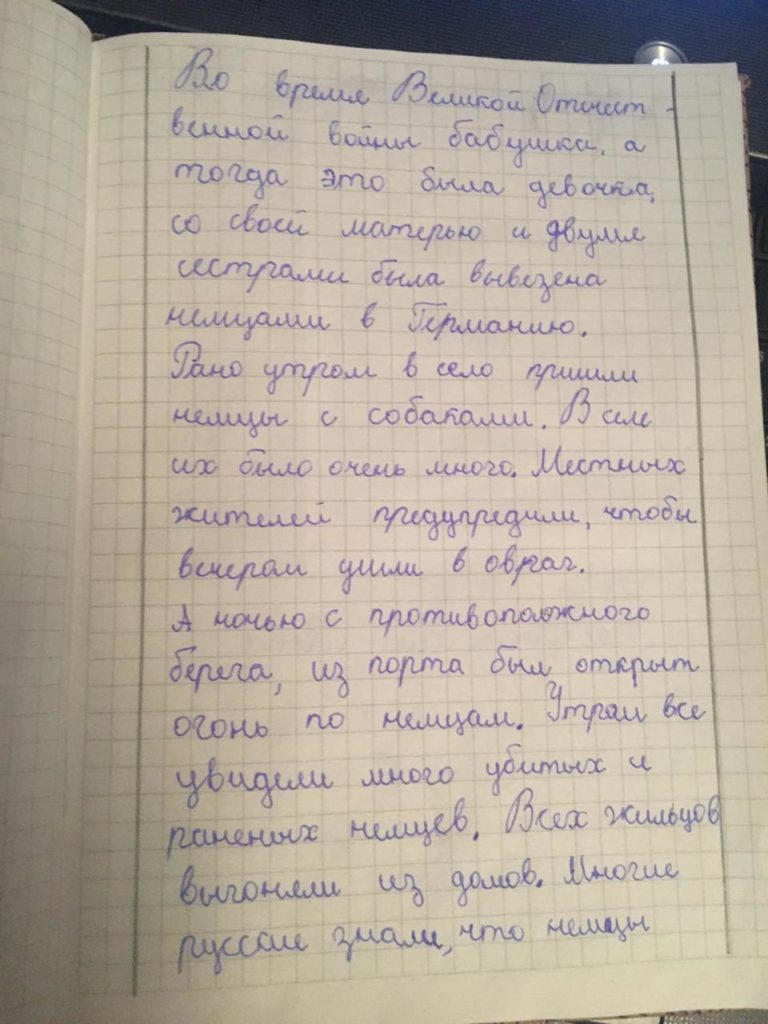 Во время Великой Отечест-
венной войны бабушка, а
тогда это была девочка,
со своей матерью и двумя
сестрами была вывезена
немцами в Германию.
Рано утром в село пришли
немцы с собаками. В селе
их было очень много. Местных
жителей предупредили, чтобы
вечером ушли в овраг.
А ночью с противоположного
берега, из порта был открыт
огонь по немцам. Утром все
увидели много убитых и
раненых немцев. Всех жильцов
выгоняли из домов. Многие
русские знали, что немцы